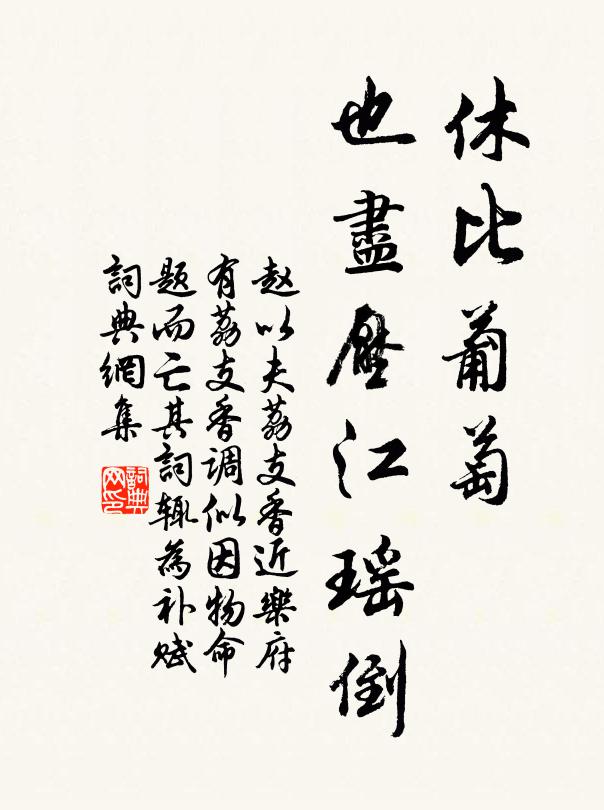 休比葡萄
也盡壓江瑶倒
赵以夫荔支香近樂府
有荔支香调似因物命
题而亡其詞辄為补赋
詞典網集
詞典
网印